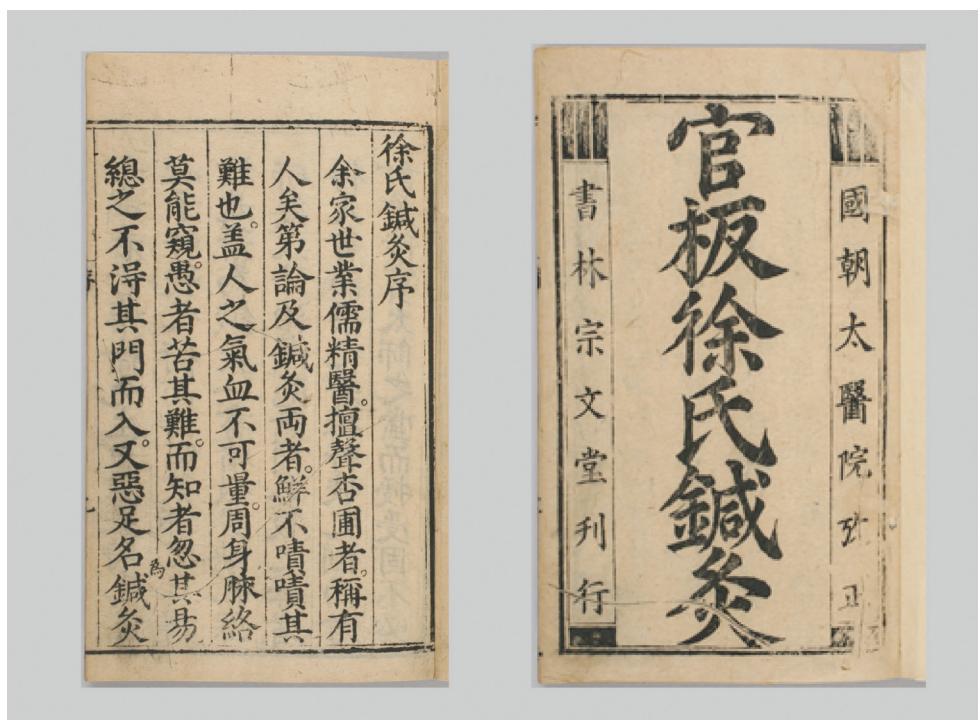 國朝太醫院攷正
官板徐氏鍼灸
書林宗文堂刊行
徐氏鍼灸序
余家世業儒精醫。擅聲杏圃者。稱有
人矣第論及鍼灸両者。鮮不嘖嘖其
難也。盖人之氣血不可量。周身脉絡
莫能窺。愚者苦其難。而知者忽其易
為
總之不淂其門而入。又惡足名鍼灸